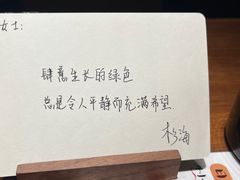 女士：
肆意生长的绿色
总是令人平静而充满希望
杉海